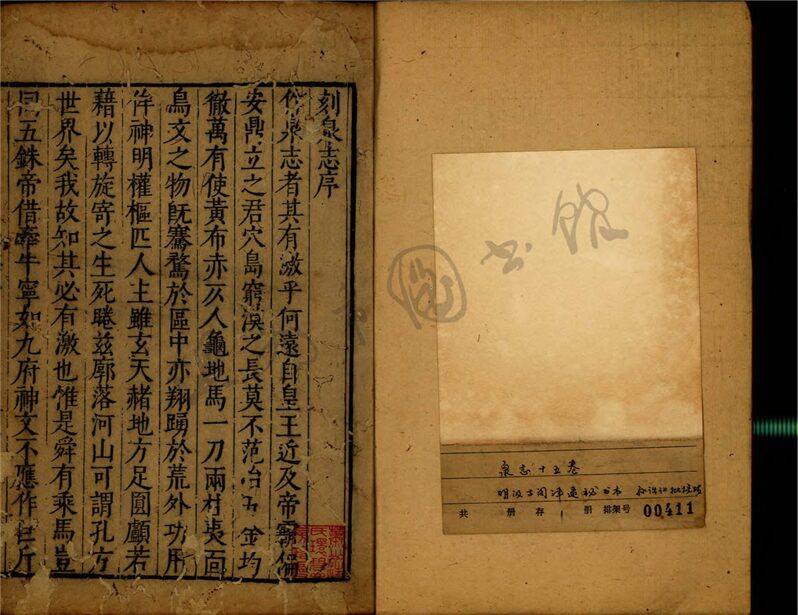 刻泉志序
作泉志者其有激乎何遠自皇王近及帝霸偏
安鼎立之君穴島窮漠之長莫不范冶五金均
徹萬有使黃布赤仄人龜地馬一刀兩村夷面
鳥文之物既騫騖於區中亦翔踴於荒外功用
侔神明權樞匹人主雖玄天赭地方足圓顱若
藉以轉旋寄之生死睠茲廓落河山可謂孔方
世界矣我故知其必有激也惟是舜有乘馬豈
同五銖帝借牽牛寧如九府神文不應作
书館
泉志十五卷
明汲古阁津逮秘书本
共 册存 1 册 排架号 00411